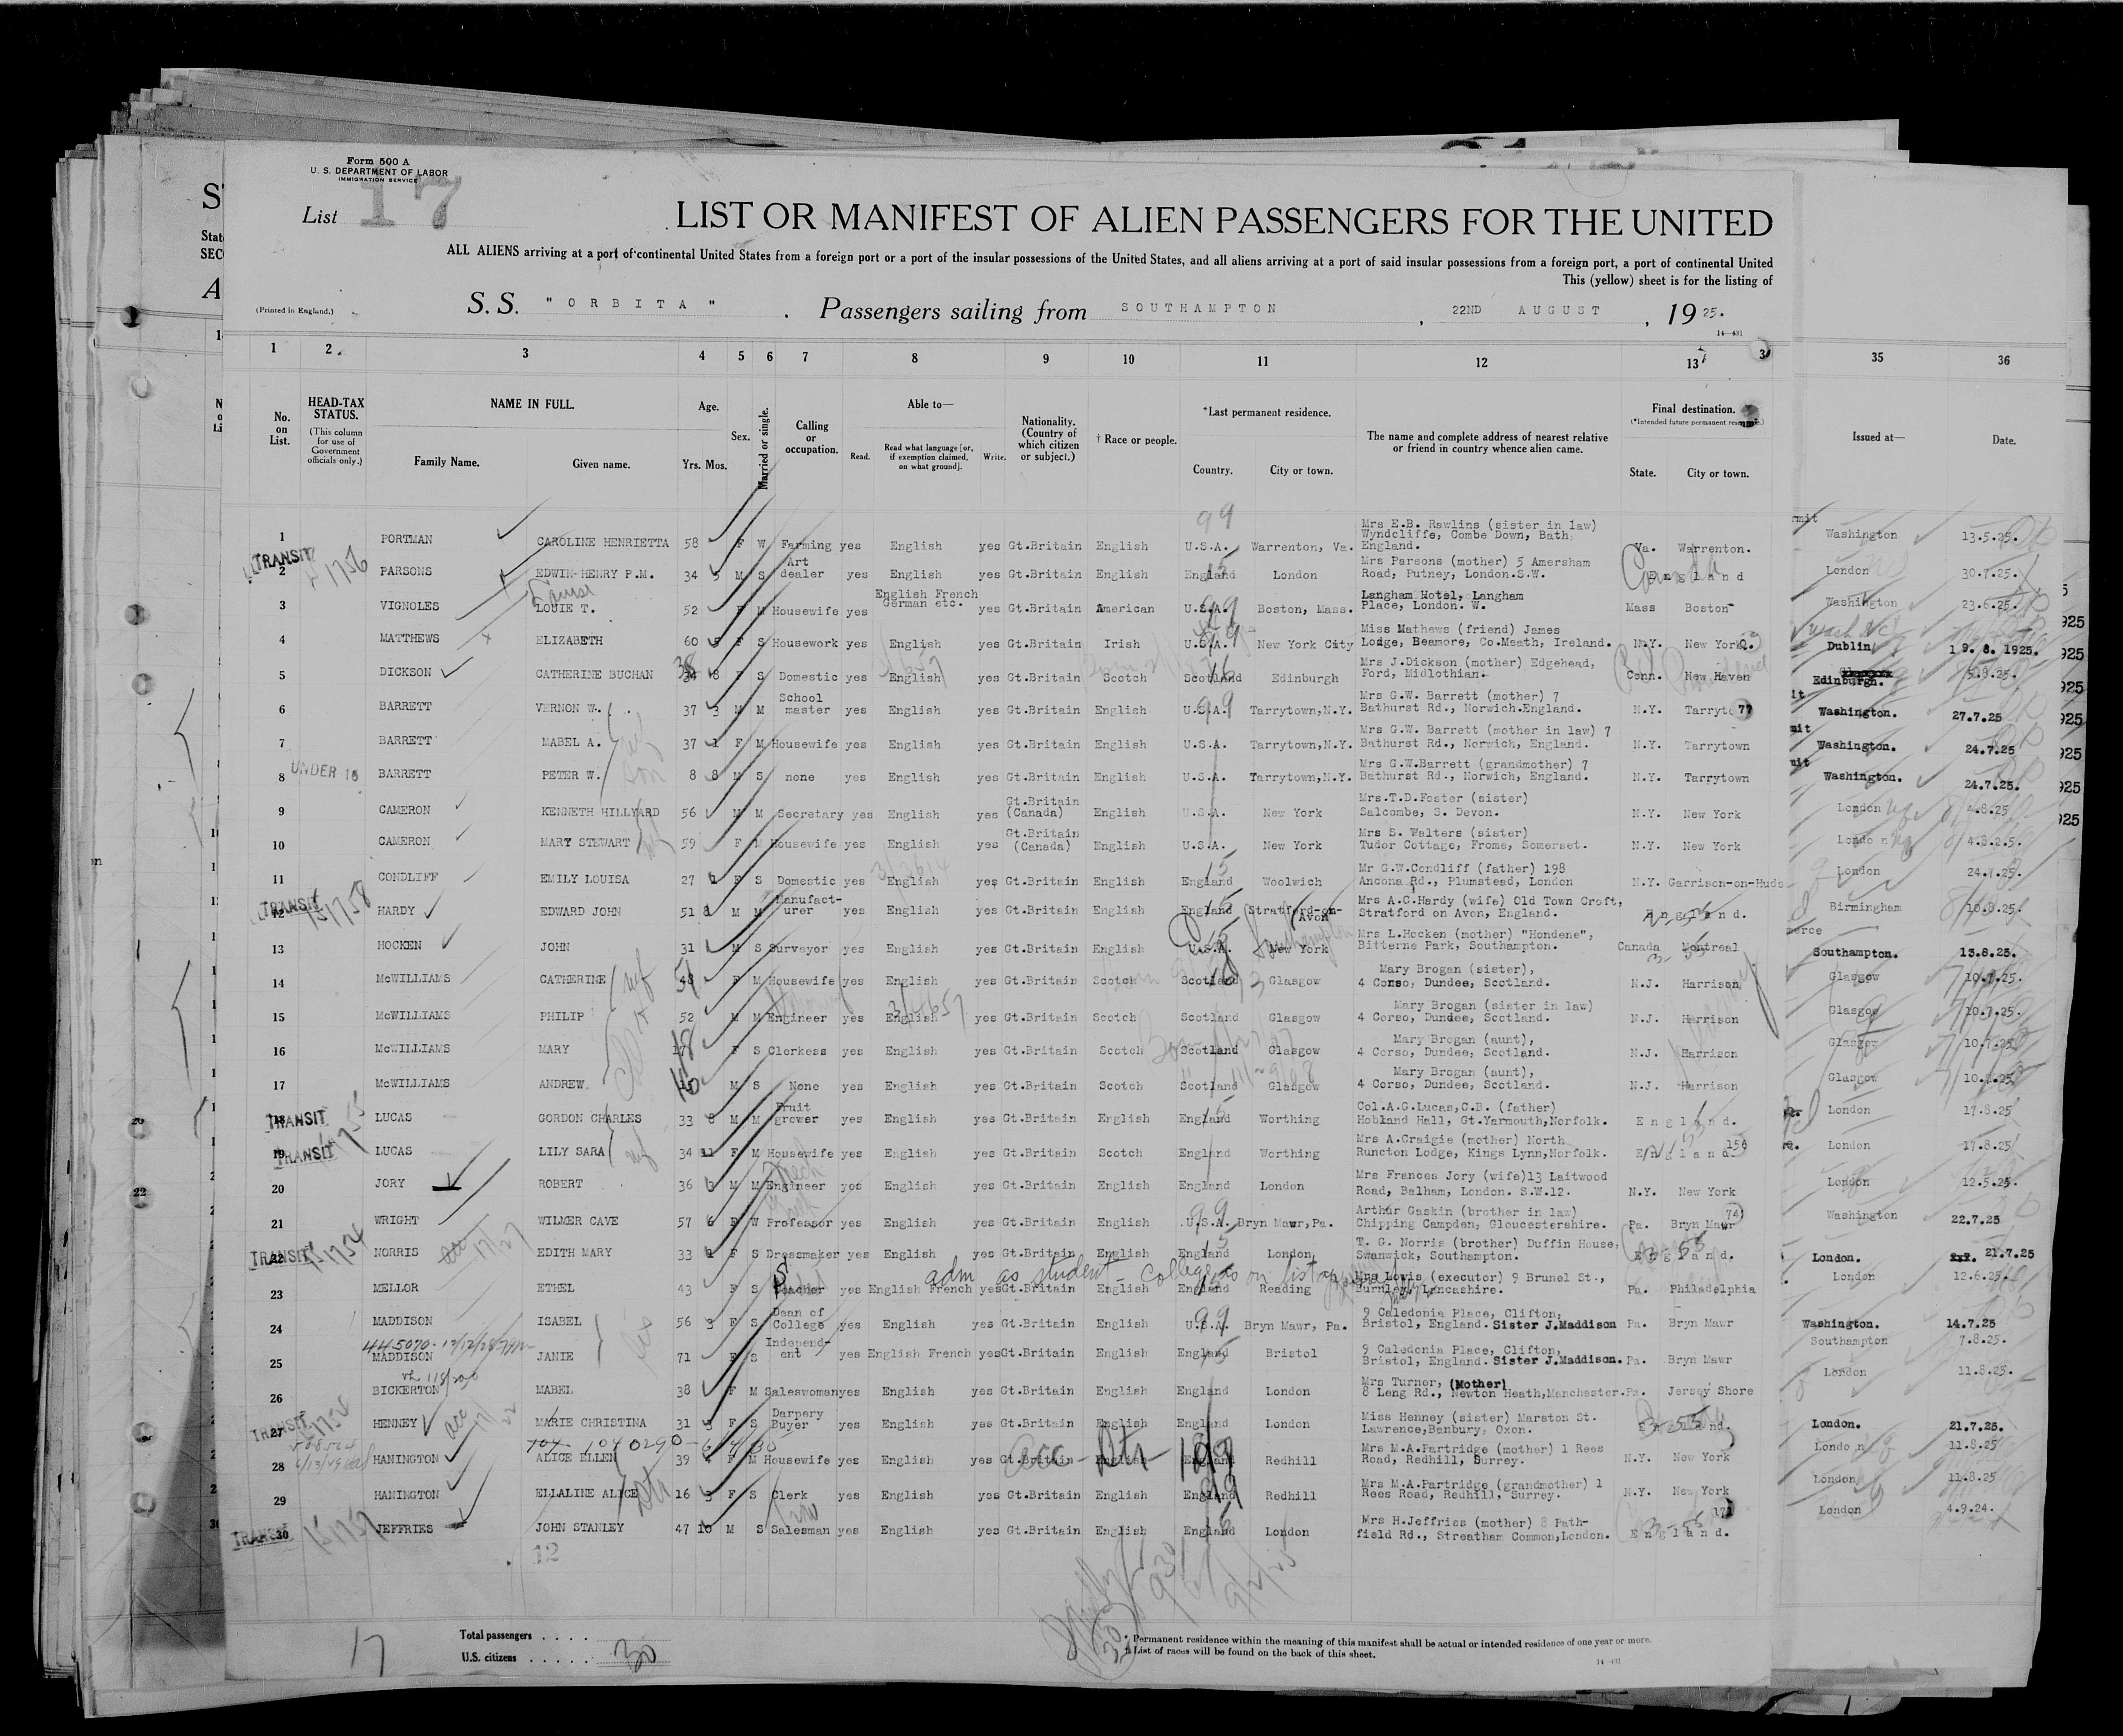 Form 500 A
U. S. DEPARTMENT OF LABOR
IMMIGRATION SERVICE
List 17
LIST OR MANIFEST OF ALIEN PASSENGERS FOR THE UNITED
ALL ALIENS arriving at a port of continental United States from a foreign port or a port of the insular possessions of the United States, and all aliens arriving at a port of said insular possessions from a foreign port, a port of continental United
This (yellow) sheet is for the listing of
(Printed in England.) S. S. "ORBITA". Passengers sailing from SOUTHAMPTON, 22ND AUGUST, 1925.
14—431
1 2. 3 4 5 6 7 8 9 10 11 12 13 35 36
No. on List. HEAD-TAX STATUS. (This column for use of Government officials only.) NAME IN FULL. Family Name. Given name. Age. Yrs. Mos. Sex. Married or single. Calling or occupation. Able to— Read. Read what language [or, if exemption claimed, on what ground]. Write. Nationality. (Country of which citizen or subject.) † Race or people. *Last permanent residence. Country. City or town. The name and complete address of nearest relative or friend in country whence alien came. Final destination. (*Intended future permanent residence.) State. City or town. Issued at— Date.
1 PORTMAN CAROLINE HENRIETTA 58 F W Farming yes English yes Gt.Britain English U.S.A. Warrenton, Va. Mrs E.B. Rawlins (sister in law) Wyndcliffe, Combe Down, Bath, England. Va. Warrenton. Washington 13.5.25.
TRANSIT 2 PARSONS EDWIN HENRY P.M. 34 5 M S Art dealer yes English yes Gt.Britain English England London Mrs Parsons (mother) 5 Amersham Road, Putney, London.S.W. England London 30.7.25.
3 VIGNOLES LOUIE T. 52 F M Housewife yes English French German etc. yes Gt.Britain American U.S.A. Boston, Mass. Langham Hotel, Langham Place, London. W. Mass Boston Washington 23.6.25.
4 MATTHEWS ELIZABETH 60 F S Housework yes English yes Gt.Britain Irish U.S.A. New York City Miss Mathews (friend) James Lodge, Beamore, Co.Meath, Ireland. N.Y. New York. Dublin 19.8.1925.
5 DICKSON CATHERINE BUCHAN 34 8 F S Domestic yes English yes Gt.Britain Scotch Scotland Edinburgh Mrs J.Dickson (mother) Edgehead, Ford, Midlothian. Conn. New Haven Edinburgh. 5.8.25.
6 BARRETT VERNON W. 37 3 M M School master yes English yes Gt.Britain English U.S.A. Tarrytown,N.Y. Mrs G.W. Barrett (mother) 7 Bathurst Rd., Norwich.England. N.Y. Tarryto Washington. 27.7.25
7 BARRETT MABEL A. 37 1 F M Housewife yes English yes Gt.Britain English U.S.A. Tarrytown,N.Y. Mrs G.W. Barrett (mother in law) 7 Bathurst Rd., Norwich, England. N.Y. Tarrytown Washington. 24.7.25
UNDER 16 8 BARRETT PETER W. 8 8 M S none yes English yes Gt.Britain English U.S.A. Tarrytown,N.Y. Mrs G.W.Barrett (grandmother) 7 Bathurst Rd., Norwich, England. N.Y. Tarrytown Washington. 24.7.25.
9 CAMERON KENNETH HILLYARD 56 M M Secretary yes English yes Gt.Britain (Canada) English U.S.A. New York Mrs.T.D.Foster (sister) Salcombe, S. Devon. N.Y. New York London 4.8.25
10 CAMERON MARY STEWART 59 F M Housewife yes English yes Gt.Britain (Canada) English U.S.A. New York Mrs S. Walters (sister) Tudor Cottage, Frome, Somerset. N.Y. New York London 4.8.2.5.
11 CONDLIFF EMILY LOUISA 27 1 F S Domestic yes English yes Gt.Britain English England Woolwich Mr G.W.Condliff (father) 198 Ancona Rd., Plumstead, London N.Y. Garrison-on-Huds London 24.7.25.
TRANSIT 12 HARDY EDWARD JOHN 51 8 M M Manufact-urer yes English yes Gt.Britain English England Stratford-on-Avon Mrs A.C.Hardy (wife) Old Town Croft, Stratford on Avon, England. England. Birmingham 10.8.25.
13 HOCKEN JOHN 31 M S Surveyor yes English yes Gt.Britain English U.S.A. New York Mrs L.Hocken (mother) "Hondene", Bitterne Park, Southampton. Canada Montreal Southampton. 13.8.25.
14 McWILLIAMS CATHERINE 48 F M Housewife yes English yes Gt.Britain Scotch Scotland Glasgow Mary Brogan (sister), 4 Corso, Dundee, Scotland. N.J. Harrison Glasgow 10.7.25.
15 McWILLIAMS PHILIP 52 M M Engineer yes English yes Gt.Britain Scotch Scotland Glasgow Mary Brogan (sister in law) 4 Corso, Dundee, Scotland. N.J. Harrison Glasgow 10.7.25.
16 McWILLIAMS MARY 17 F S Clerkess yes English yes Gt.Britain Scotch Scotland Glasgow Mary Brogan (aunt), 4 Corso, Dundee, Scotland. N.J. Harrison Glasgow 10.7.25
17 McWILLIAMS ANDREW M S None yes English yes Gt.Britain Scotch Scotland Glasgow Mary Brogan (aunt), 4 Corso, Dundee, Scotland. N.J. Harrison Glasgow 10.7.25
TRANSIT 18 LUCAS GORDON CHARLES 33 8 M M Fruit grower yes English yes Gt.Britain English England Worthing Col.A.G.Lucas,C.B. (father) Hobland Hall, Gt.Yarmouth,Norfolk. England. London 17.8.25
TRANSIT 19 LUCAS LILY SARA 34 11 F M Housewife yes English yes Gt.Britain Scotch England Worthing Mrs A.Craigie (mother) North Runcton Lodge, Kings Lynn,Norfolk. England London 17.8.25
20 JORY ROBERT 36 3 M M Engineer yes English yes Gt.Britain English England London Mrs Frances Jory (wife)13 Laitwood Road, Balham, London. S.W.12. N.Y. New York London 12.5.25.
21 WRIGHT WILMER CAVE 57 6 F W Professor yes English yes Gt.Britain English U.S.A. Bryn Mawr,Pa. Arthur Gaskin (brother in law) Chipping Campden, Gloucestershire. Pa. Bryn Mawr Washington 22.7.25
TRANSIT 22 NORRIS EDITH MARY 33 1 F S Dressmaker yes English yes Gt.Britain English England London T. G. Norris (brother) Duffin House, Swanwick, Southampton. England. London. 21.7.25
adm as student - college
23 MELLOR ETHEL 43 F S Teacher yes English French yes Gt.Britain English England Reading Mrs Lewis (executor) 9 Brunel St., Burnley, Lancashire. Pa. Philadelphia London 12.6.25.
24 MADDISON ISABEL 56 3 F S Dean of College yes English yes Gt.Britain English U.S.A. Bryn Mawr, Pa. 9 Caledonia Place, Clifton, Bristol, England. Sister J.Maddison Pa. Bryn Mawr Washington. 14.7.25
25 MADDISON JANIE 71 F S Independ-ent yes English French yes Gt.Britain English England Bristol 9 Caledonia Place, Clifton, Bristol, England. Sister J.Maddison. Pa. Bryn Mawr Southampton 7.8.25.
26 BICKERTON MABEL 38 F M Saleswoman yes English yes Gt.Britain English England London Mrs Turner, (Mother) 8 Leng Rd., Newton Heath,Manchester. Pa. Jersey Shore London 11.8.25.
TRANSIT 27 HENNEY MARIE CHRISTINA 31 3 F S Darpery Buyer yes English yes Gt.Britain English England London Miss Henney (sister) Marston St. Lawrence,Banbury, Oxon. England. London. 21.7.25.
28 HANINGTON ALICE ELLEN 39 F M Housewife yes English yes Gt.Britain English England Redhill Mrs M.A.Partridge (mother) 1 Rees Road, Redhill, Surrey. N.Y. New York London 11.8.25
29 HANINGTON ELLALINE ALICE 16 3 F S Clerk yes English yes Gt.Britain English England Redhill Mrs M.A.Partridge (grandmother) 1 Rees Road, Redhill, Surrey. N.Y. New York London 11.8.25
TRANSIT 30 JEFFRIES JOHN STANLEY 47 10 M S Salesman yes English yes Gt.Britain English England London Mrs H.Jeffries (mother) 8 Path-field Rd., Streatham Common,London. England. London 4.9.24.
12
17
Total passengers . . . .
U.S. citizens . . . . . 30
* Permanent residence within the meaning of this manifest shall be actual or intended residence of one year or more.
† List of races will be found on the back of this sheet.
14—431